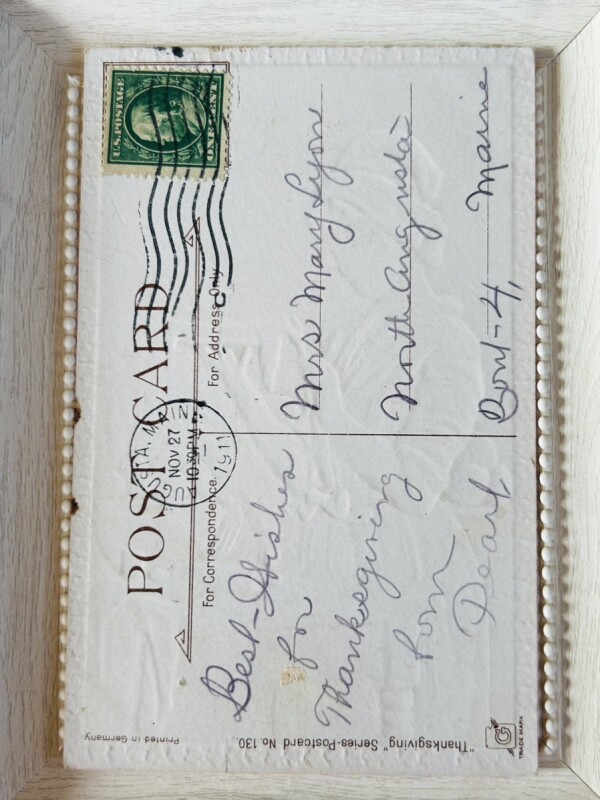 POST CARD
U.S. POSTAGE
ONE CENT
NOV 27
1911
For Correspondence.
For Address Only
Best-Wishes
for
Thanksgiving
from
Pearl
Mrs Mary Lyon
North Augusta
Maine
"Thanksgiving" Series-Postcard No. 130.
Printed in Germany
G
TRADE MARK